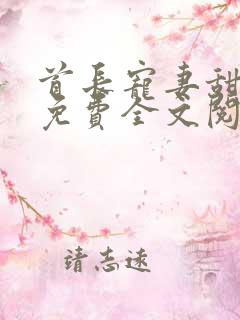 首长宠妻甜
免费全文阅
靖志远